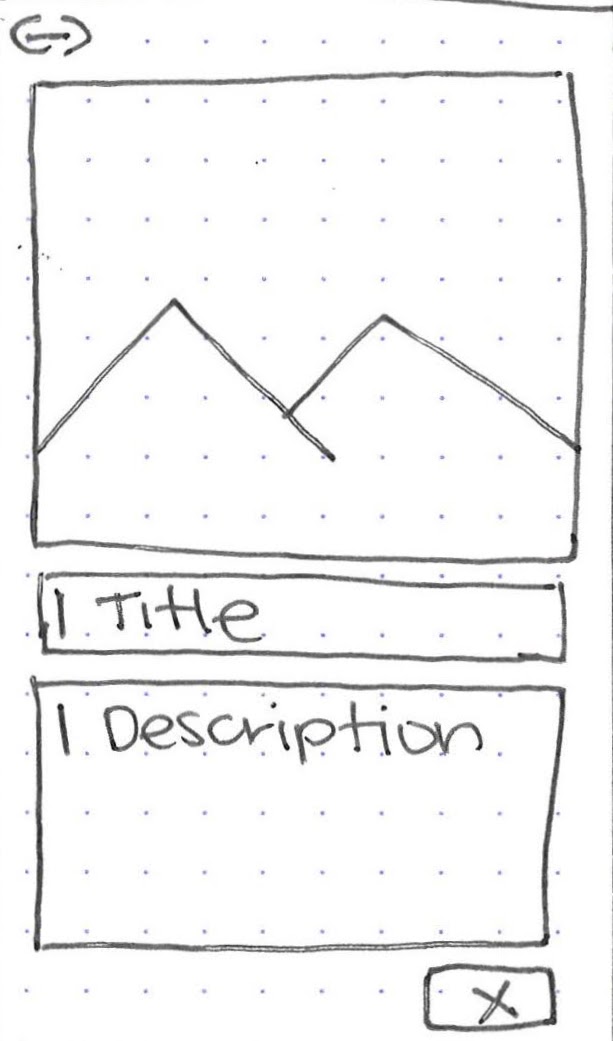 | Title
| Description
X